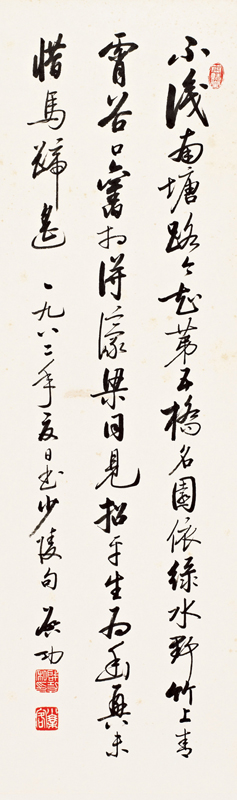 不識南塘路今知第五橋名園依綠水野竹上青
霄谷口舊相得濠梁同見招平生為幽興未
惜馬蹄遙 一九八二年夏日書少陵句 啟功